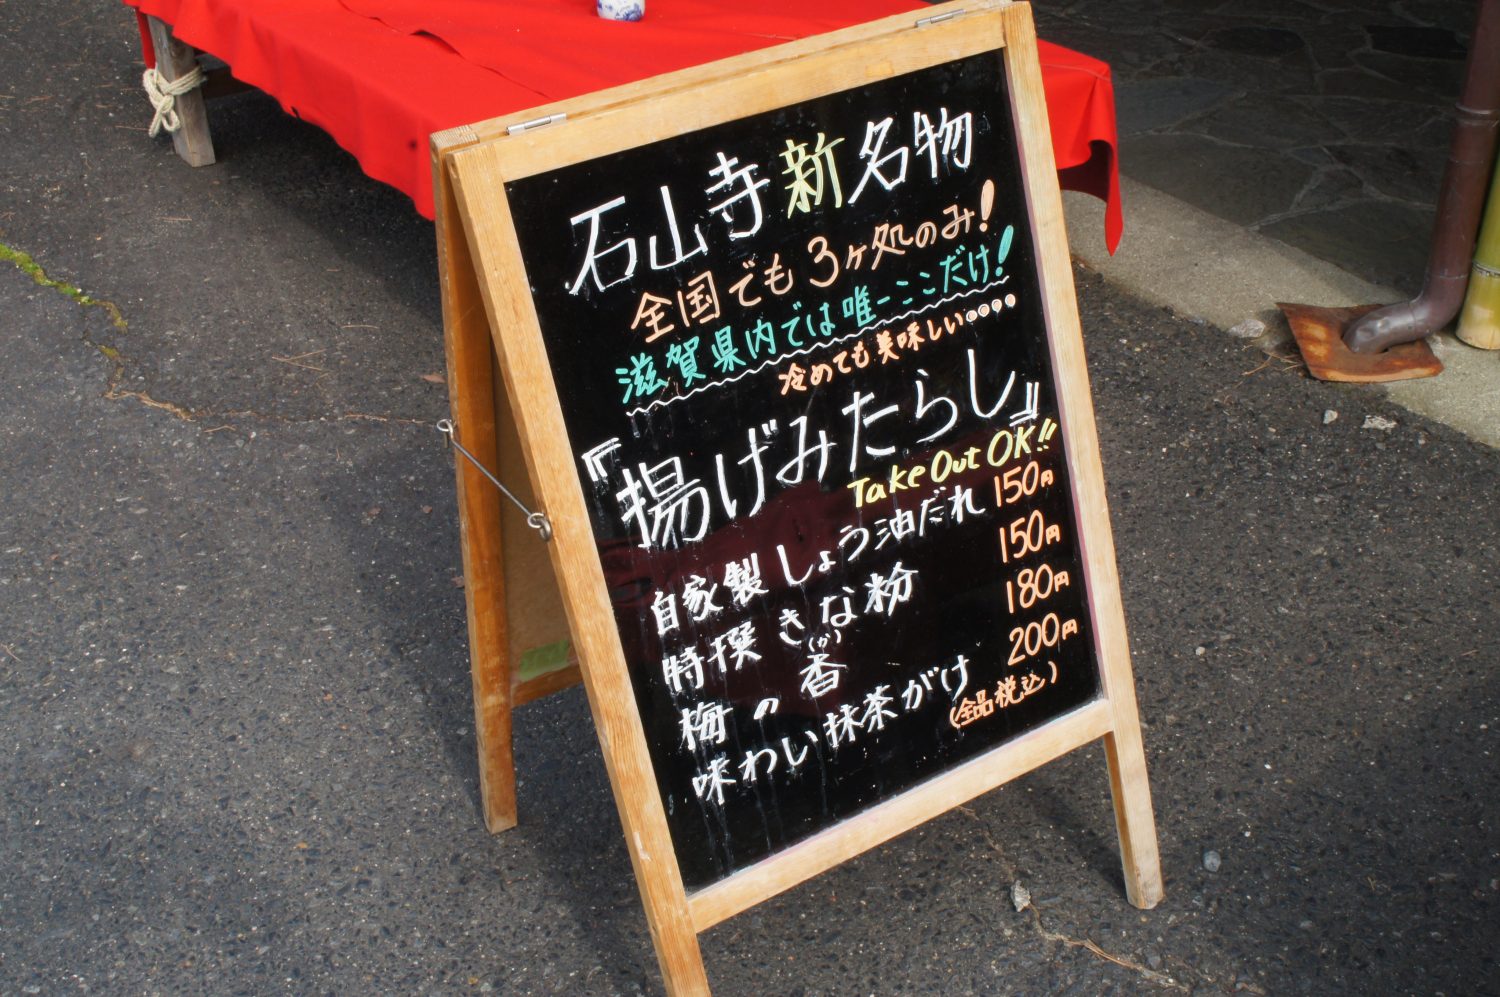 石山寺新名物
全国でも3ヶ処のみ!
滋賀県内では唯一ここだけ!
冷めても美味しい。。。。
『揚げみたらし』
Take Out OK!!
自家製しょう油だれ 150円
特撰きな粉 150円
梅の香(か) 180円
味わい抹茶がけ 200円
(全品税込)